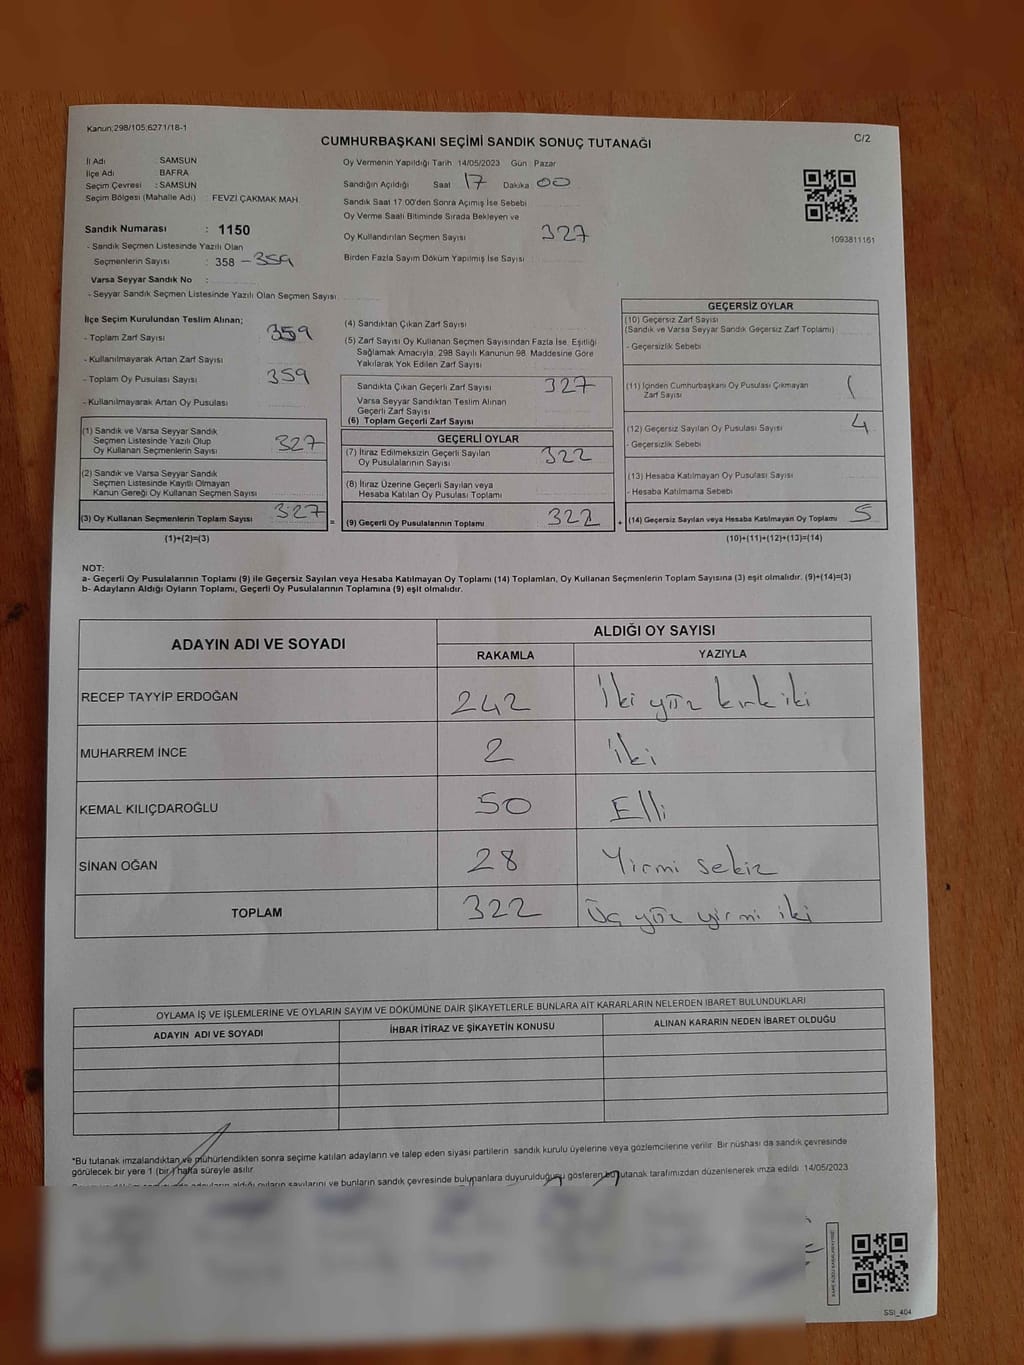 Kanun;298/105;6271/18-1
C/2
CUMHURBAŞKANI SEÇİMİ SANDIK SONUÇ TUTANAĞI
İl Adı : SAMSUN
İlçe Adı : BAFRA
Seçim Çevresi : SAMSUN
Seçim Bölgesi (Mahalle Adı) : FEVZİ ÇAKMAK MAH
Sandık Numarası : 1150
- Sandık Seçmen Listesinde Yazılı Olan
Seçmenlerin Sayısı : 358 - 359
Varsa Seyyar Sandık No :
- Seyyar Sandık Seçmen Listesinde Yazılı Olan Seçmen Sayısı
Oy Vermenin Yapıldığı Tarih 14/05/2023 Gün Pazar
Sandığın Açıldığı Saat 17 Dakika 00
Sandık Saat 17:00'den Sonra Açımış İse Sebebi
Oy Verme Saati Bitiminde Sırada Bekleyen ve
Oy Kullandırılan Seçmen Sayısı 327
Birden Fazla Sayım Döküm Yapılmış İse Sayısı
1093811161
İlçe Seçim Kurulundan Teslim Alınan;
- Toplam Zarf Sayısı 359
- Kullanılmayarak Artan Zarf Sayısı
- Toplam Oy Pusulası Sayısı 359
- Kullanılmayarak Artan Oy Pusulası
(1) Sandık ve Varsa Seyyar Sandık
Seçmen Listesinde Yazılı Olup
Oy Kullanan Seçmenlerin Sayısı 327
(2) Sandık ve Varsa Seyyar Sandık
Seçmen Listesinde Kayıtlı Olmayan
Kanun Gereği Oy Kullanan Seçmen Sayısı
(3) Oy Kullanan Seçmenlerin Toplam Sayısı 327 =
(1)+(2)=(3)
(4) Sandıktan Çıkan Zarf Sayısı
(5) Zarf Sayısı Oy Kullanan Seçmen Sayısından Fazla İse, Eşitliği
Sağlamak Amacıyla, 298 Sayılı Kanunun 98. Maddesine Göre
Yakılarak Yok Edilen Zarf Sayısı
Sandıkta Çıkan Geçerli Zarf Sayısı 327
Varsa Seyyar Sandıktan Teslim Alınan
Geçerli Zarf Sayısı
(6) Toplam Geçerli Zarf Sayısı
GEÇERLİ OYLAR
(7) İtiraz Edilmeksizin Geçerli Sayılan
Oy Pusulalarının Sayısı 322
(8) İtiraz Üzerine Geçerli Sayılan veya
Hesaba Katılan Oy Pusulası Toplamı
(9) Geçerli Oy Pusulalarının Toplamı 322 +
GEÇERSİZ OYLAR
(10) Geçersiz Zarf Sayısı
(Sandık ve Varsa Seyyar Sandık Geçersiz Zarf Toplamı)
- Geçersizlik Sebebi
(11) İçinden Cumhurbaşkanı Oy Pusulası Çıkmayan
Zarf Sayısı 1
(12) Geçersiz Sayılan Oy Pusulası Sayısı 4
- Geçersizlik Sebebi
(13) Hesaba Katılmayan Oy Pusulası Sayısı
- Hesaba Katılmama Sebebi
(14) Geçersiz Sayılan veya Hesaba Katılmayan Oy Toplamı 5
(10)+(11)+(12)+(13)=(14)
NOT:
a- Geçerli Oy Pusulalarının Toplamı (9) ile Geçersiz Sayılan veya Hesaba Katılmayan Oy Toplamı (14) Toplamları, Oy Kullanan Seçmenlerin Toplam Sayısına (3) eşit olmalıdır. (9)+(14)=(3)
b- Adayların Aldığı Oyların Toplamı, Geçerli Oy Pusulalarının Toplamına (9) eşit olmalıdır.
ADAYIN ADI VE SOYADI
ALDIĞI OY SAYISI
RAKAMLA YAZIYLA
RECEP TAYYİP ERDOĞAN 242 İki yüz kırk iki
MUHARREM İNCE 2 İki
KEMAL KILIÇDAROĞLU 50 Elli
SİNAN OĞAN 28 Yirmi sekiz
TOPLAM 322 Üç yüz yirmi iki
OYLAMA İŞ VE İŞLEMLERİNE VE OYLARIN SAYIM VE DÖKÜMÜNE DAİR ŞİKAYETLERLE BUNLARA AİT KARARLARIN NELERDEN İBARET BULUNDUKLARI
ADAYIN ADI VE SOYADI İHBAR İTİRAZ VE ŞİKAYETİN KONUSU ALINAN KARARIN NEDEN İBARET OLDUĞU
*Bu tutanak imzalandıktan ve mühürlendikten sonra seçime katılan adayların ve talep eden siyasi partilerin sandık kurulu üyelerine veya gözlemcilerine verilir. Bir nüshası da sandık çevresinde
görülecek bir yere 1 (bir) hafta süreyle asılır.
adayların aldığı oyların sayılarını ve bunların sandık çevresinde bulunanlara duyurulduğunu gösteren bu tutanak tarafımızdan düzenlenerek imza edildi. 14/05/2023
SSI_404